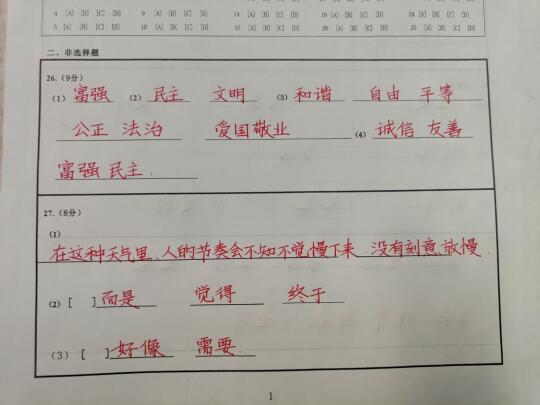 4 [A] [B] [C] [D] 9 [A] [B] [C] [D] 14 [A] [B] [C] [D] 19 [A] [B] [C] [D] 24 [A] [B] [C] [D]
5 [A] [B] [C] [D] 10 [A] [B] [C] [D] 15 [A] [B] [C] [D] 20 [A] [B] [C] [D] 25 [A] [B] [C] [D]
二、非选择题
26.(9分)
(1) 富强 (2) 民主 文明 (3) 和谐 自由 平等
公正 法治 爱国敬业 (4) 诚信 友善
富强 民主.
27.(8分)
(1)
在这种天气里,人的节奏会不知不觉慢下来.没有刻意放慢.
(2) [ ] 而是 觉得 终于
(3) [ ] 好像 需要.
1